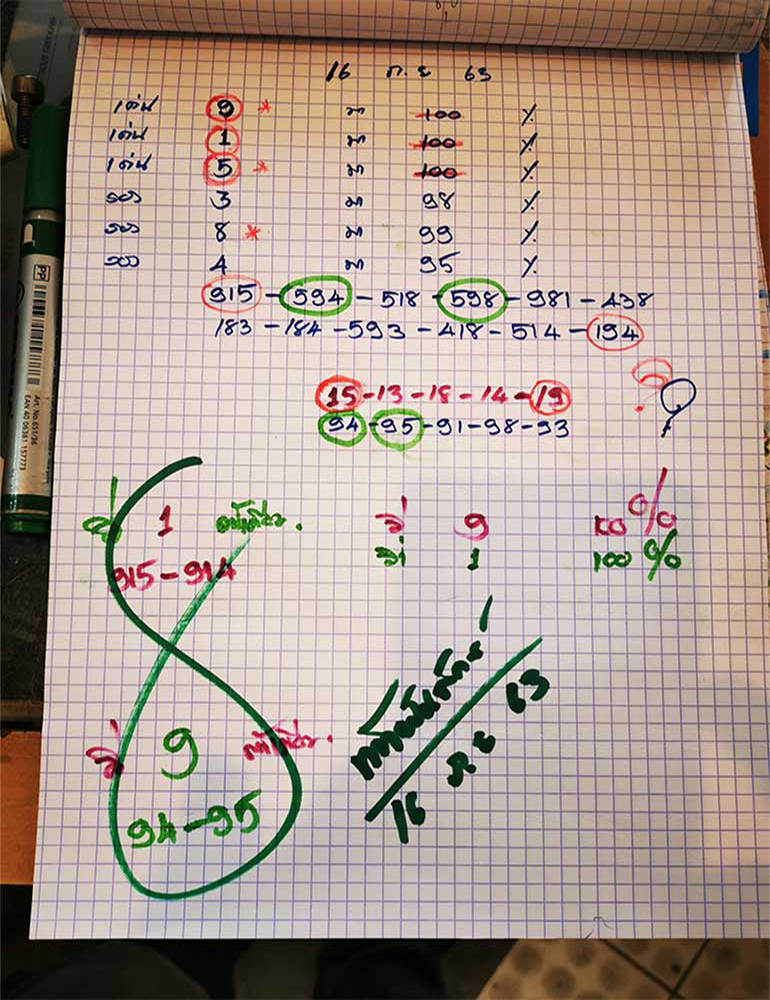 16 ก.ย 63
เด่น 9 * มา 100 %
เด่น 1 มา 100 %
เด่น 5 * มา 100 %
รอง 3 มา 98 %
รอง 8 * มา 99 %
รอง 4 มา 95 %
915 - 594 - 518 - 598 - 981 - 438
183 - 184 - 593 - 418 - 514 - 194
15 - 13 - 18 - 14 - 19
94 - 95 - 91 - 98 - 93
? ?
1
915 - 914
9 100 %
1 100 %
9
94 - 95
16 ก.ย 63
PP
Art. No. 651/36
EAN 40 06381 157773